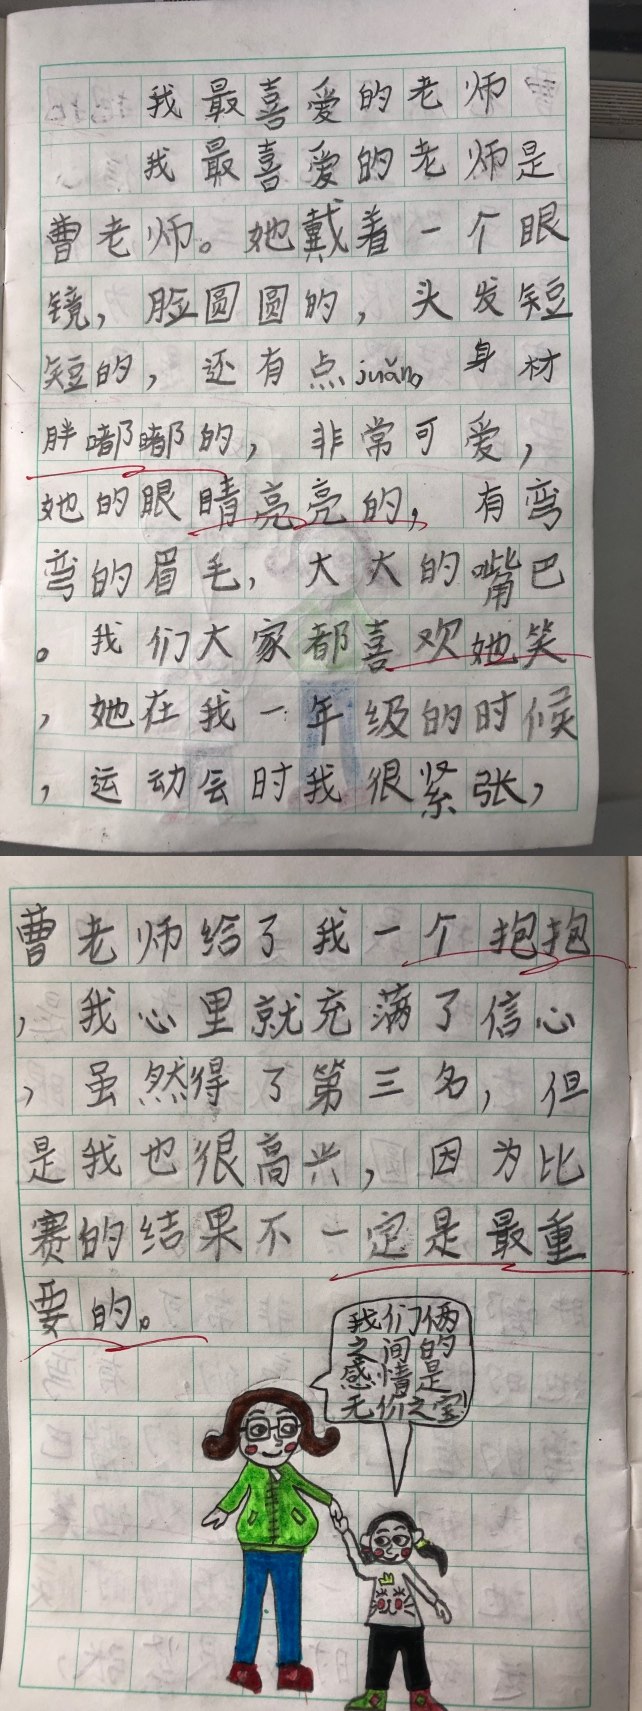 我最喜爱的老师
我最喜爱的老师是
曹老师。她戴着一个眼
镜，脸圆圆的，头发短
短的，还有点juǎn。身材
胖嘟嘟的，非常可爱，
她的眼睛亮亮的，有弯
弯的眉毛，大大的嘴巴
。我们大家都喜欢她笑
，她在我一年级的时候
，运动会时我很紧张，
曹老师给了我一个抱抱
，我心里就充满了信心
，虽然得了第三名，但
是我也很高兴，因为比
赛的结果不一定是最重
要的。
我们俩
之间的
感情是
无价之宝!